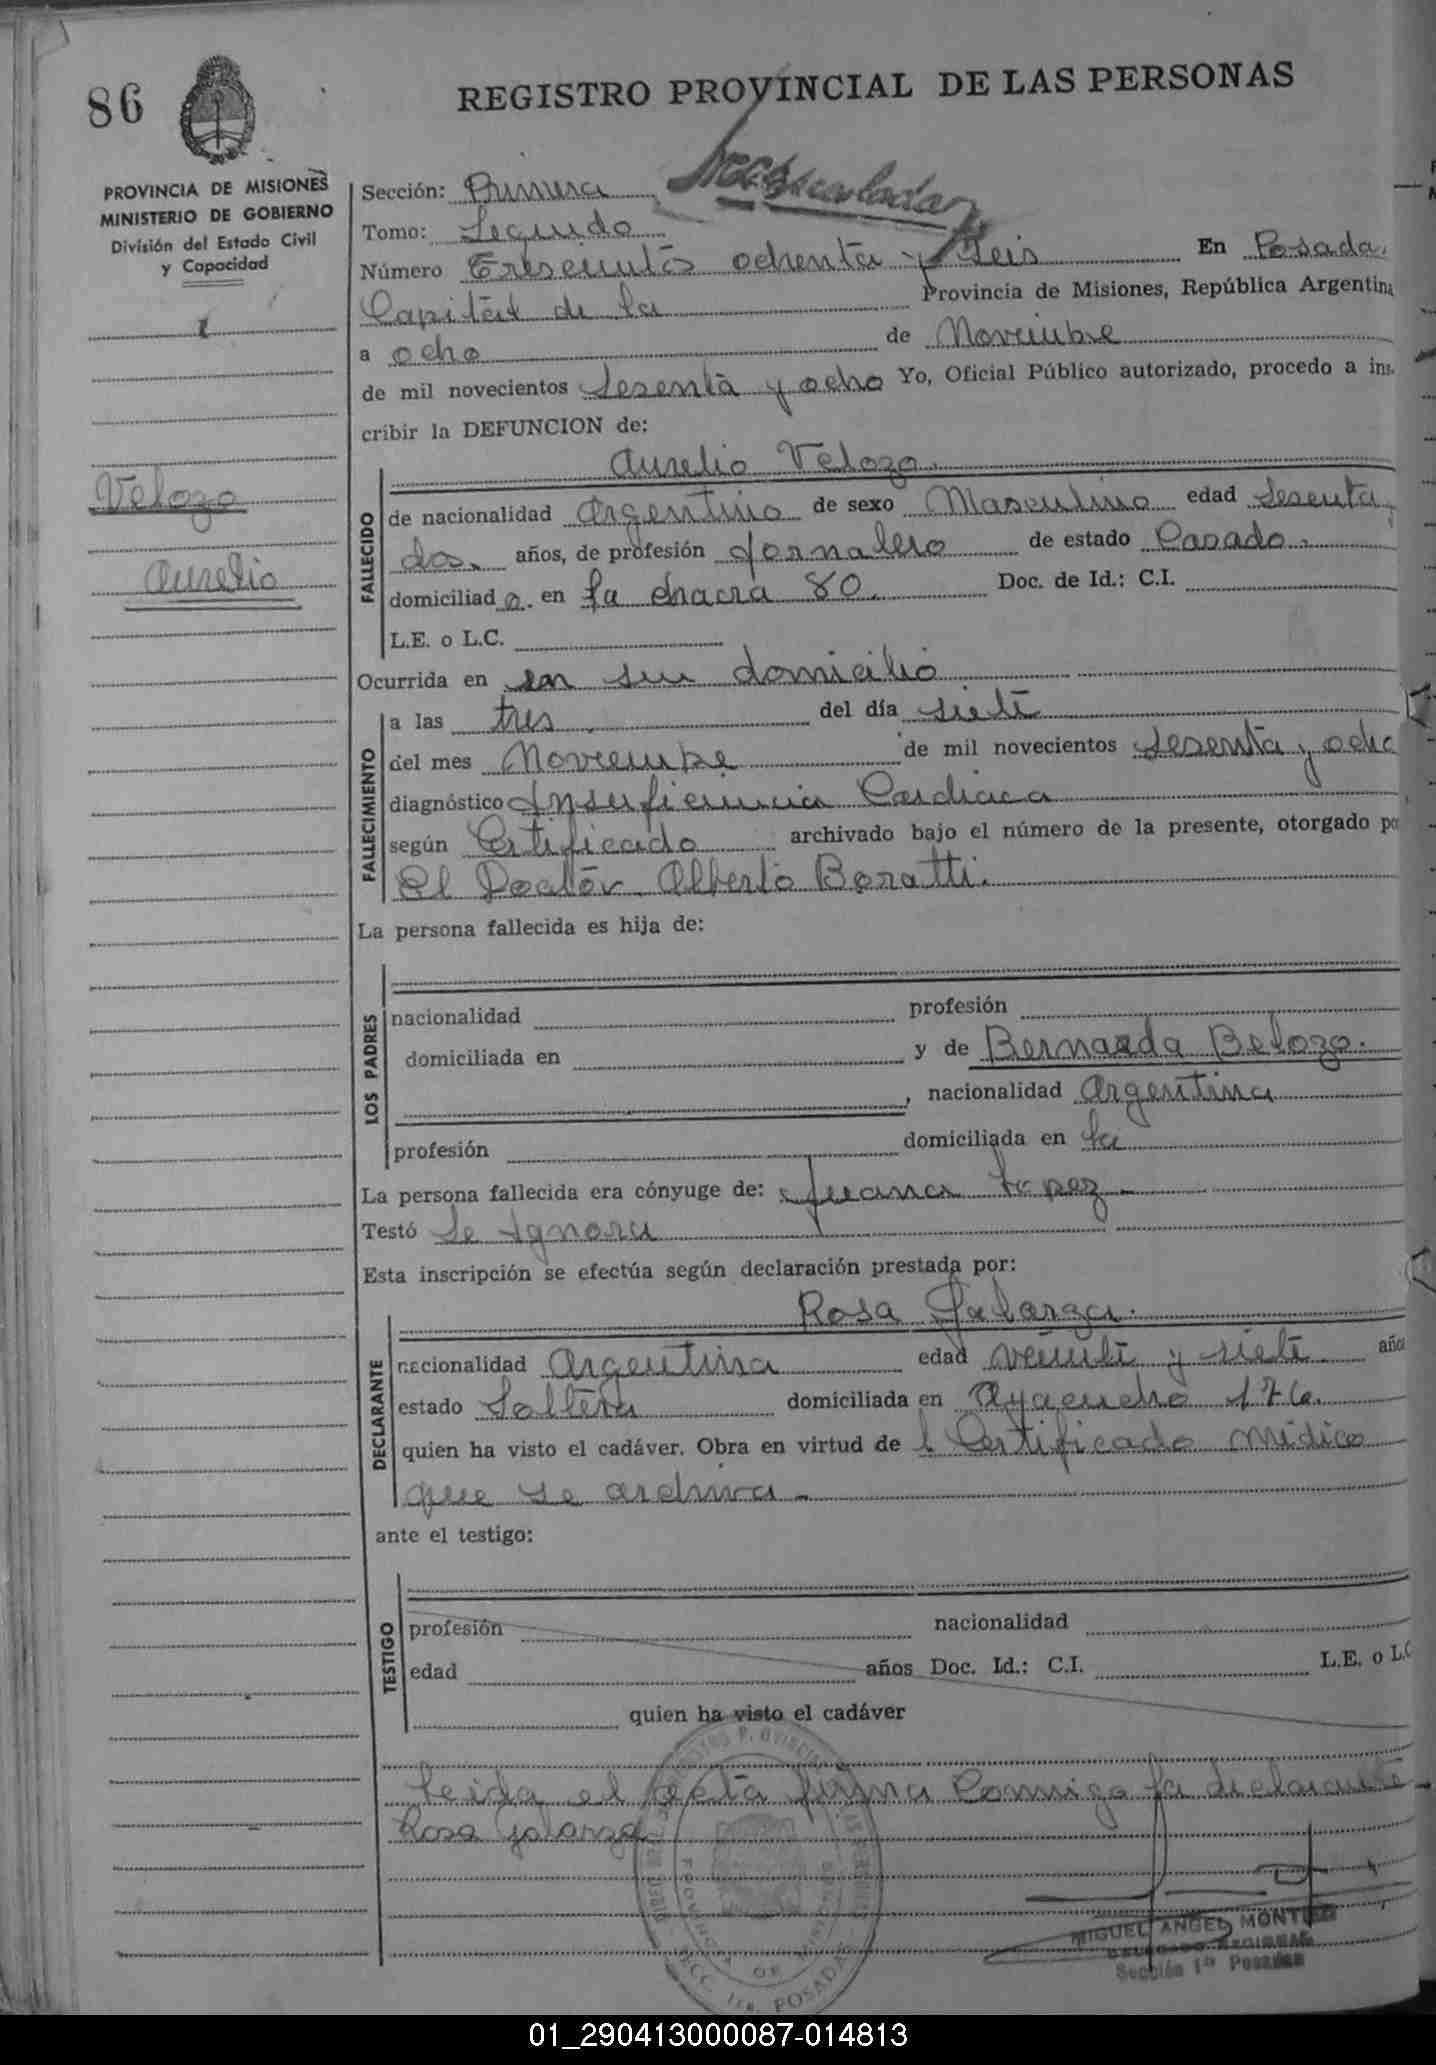 86
REGISTRO PROVINCIAL DE LAS PERSONAS
PROVINCIA DE MISIONES
MINISTERIO DE GOBIERNO
División del Estado Civil
y Capacidad
Sección: Primera
Tomo: Segundo
Número Trescientos ochenta y Seis En Posadas
Capital de la Provincia de Misiones, República Argentina
a ocho de Noviembre
de mil novecientos Sesenta y ocho Yo, Oficial Público autorizado, procedo a ins-
cribir la DEFUNCION de:
Velozo
Aurelio
FALLECIDO
Aurelio Velozo.
de nacionalidad Argentino de sexo Masculino edad Sesenta y
dos. años, de profesión Jornalero de estado Casado.
domiciliad o. en la chacra 80. Doc. de Id.: C.I.
L.E. o L.C.
Ocurrida en en su domicilio
FALLECIMIENTO
a las tres del día siete
del mes Noviembre de mil novecientos Sesenta y ocho
diagnóstico Insuficiencia Cardiaca
según Certificado archivado bajo el número de la presente, otorgado po
El Doctor Alberto Boratti.
La persona fallecida es hija de:
LOS PADRES
nacionalidad profesión
domiciliada en y de Bernarda Belozo.
, nacionalidad Argentina
profesión domiciliada en la
La persona fallecida era cónyuge de: Juana Lopez -
Testó Se Ignora
Esta inscripción se efectúa según declaración prestada por:
DECLARANTE
Rosa Galarza.
nacionalidad Argentina edad veinte y siete año
estado Soltera domiciliada en Ayacucho 176.
quien ha visto el cadáver. Obra en virtud de l Certificado médico
que se archiva -
ante el testigo:
TESTIGO
profesión nacionalidad
edad años Doc. Id.: C.I. L.E. o L.C
quien ha visto el cadáver
Leida el acta firma Comigo la declarante
Rosa Galarza
MIGUEL ANGEL
Sección 1ra Posadas
POSADAS
01_290413000087-014813